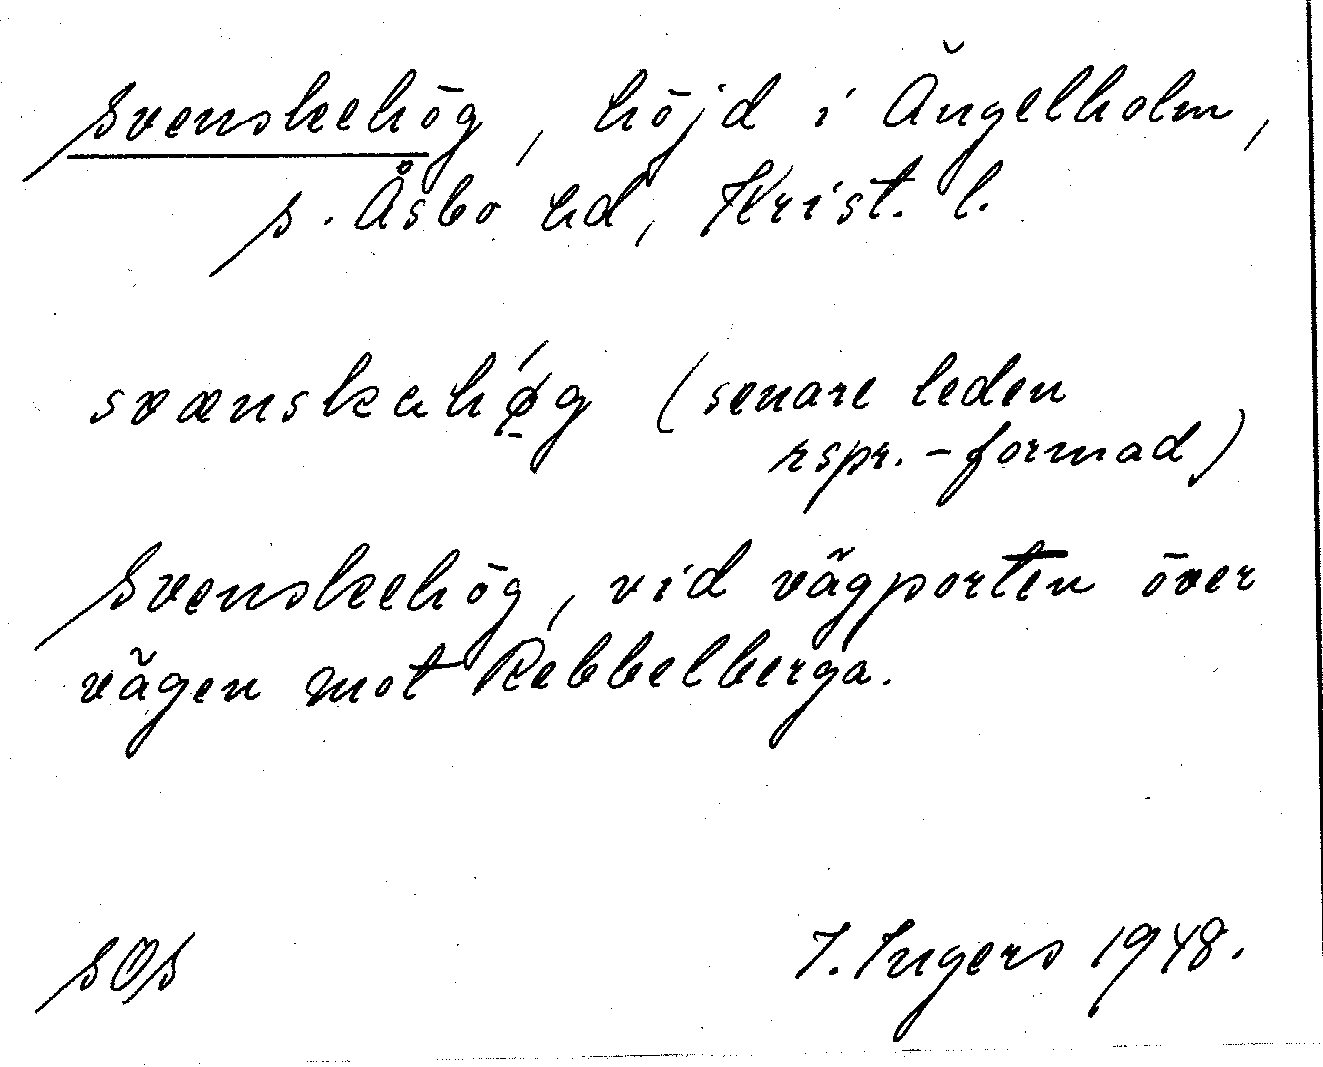 Svenskehög, höjd i Ängelholm,
S. Åsbo hd, Krist. l.
svænskahǿg (senare leden
rspr.-formad)
Svenskehög, vid vägporten över
vägen mot Rebbelberga.
SOS
I. Ingers 1948.